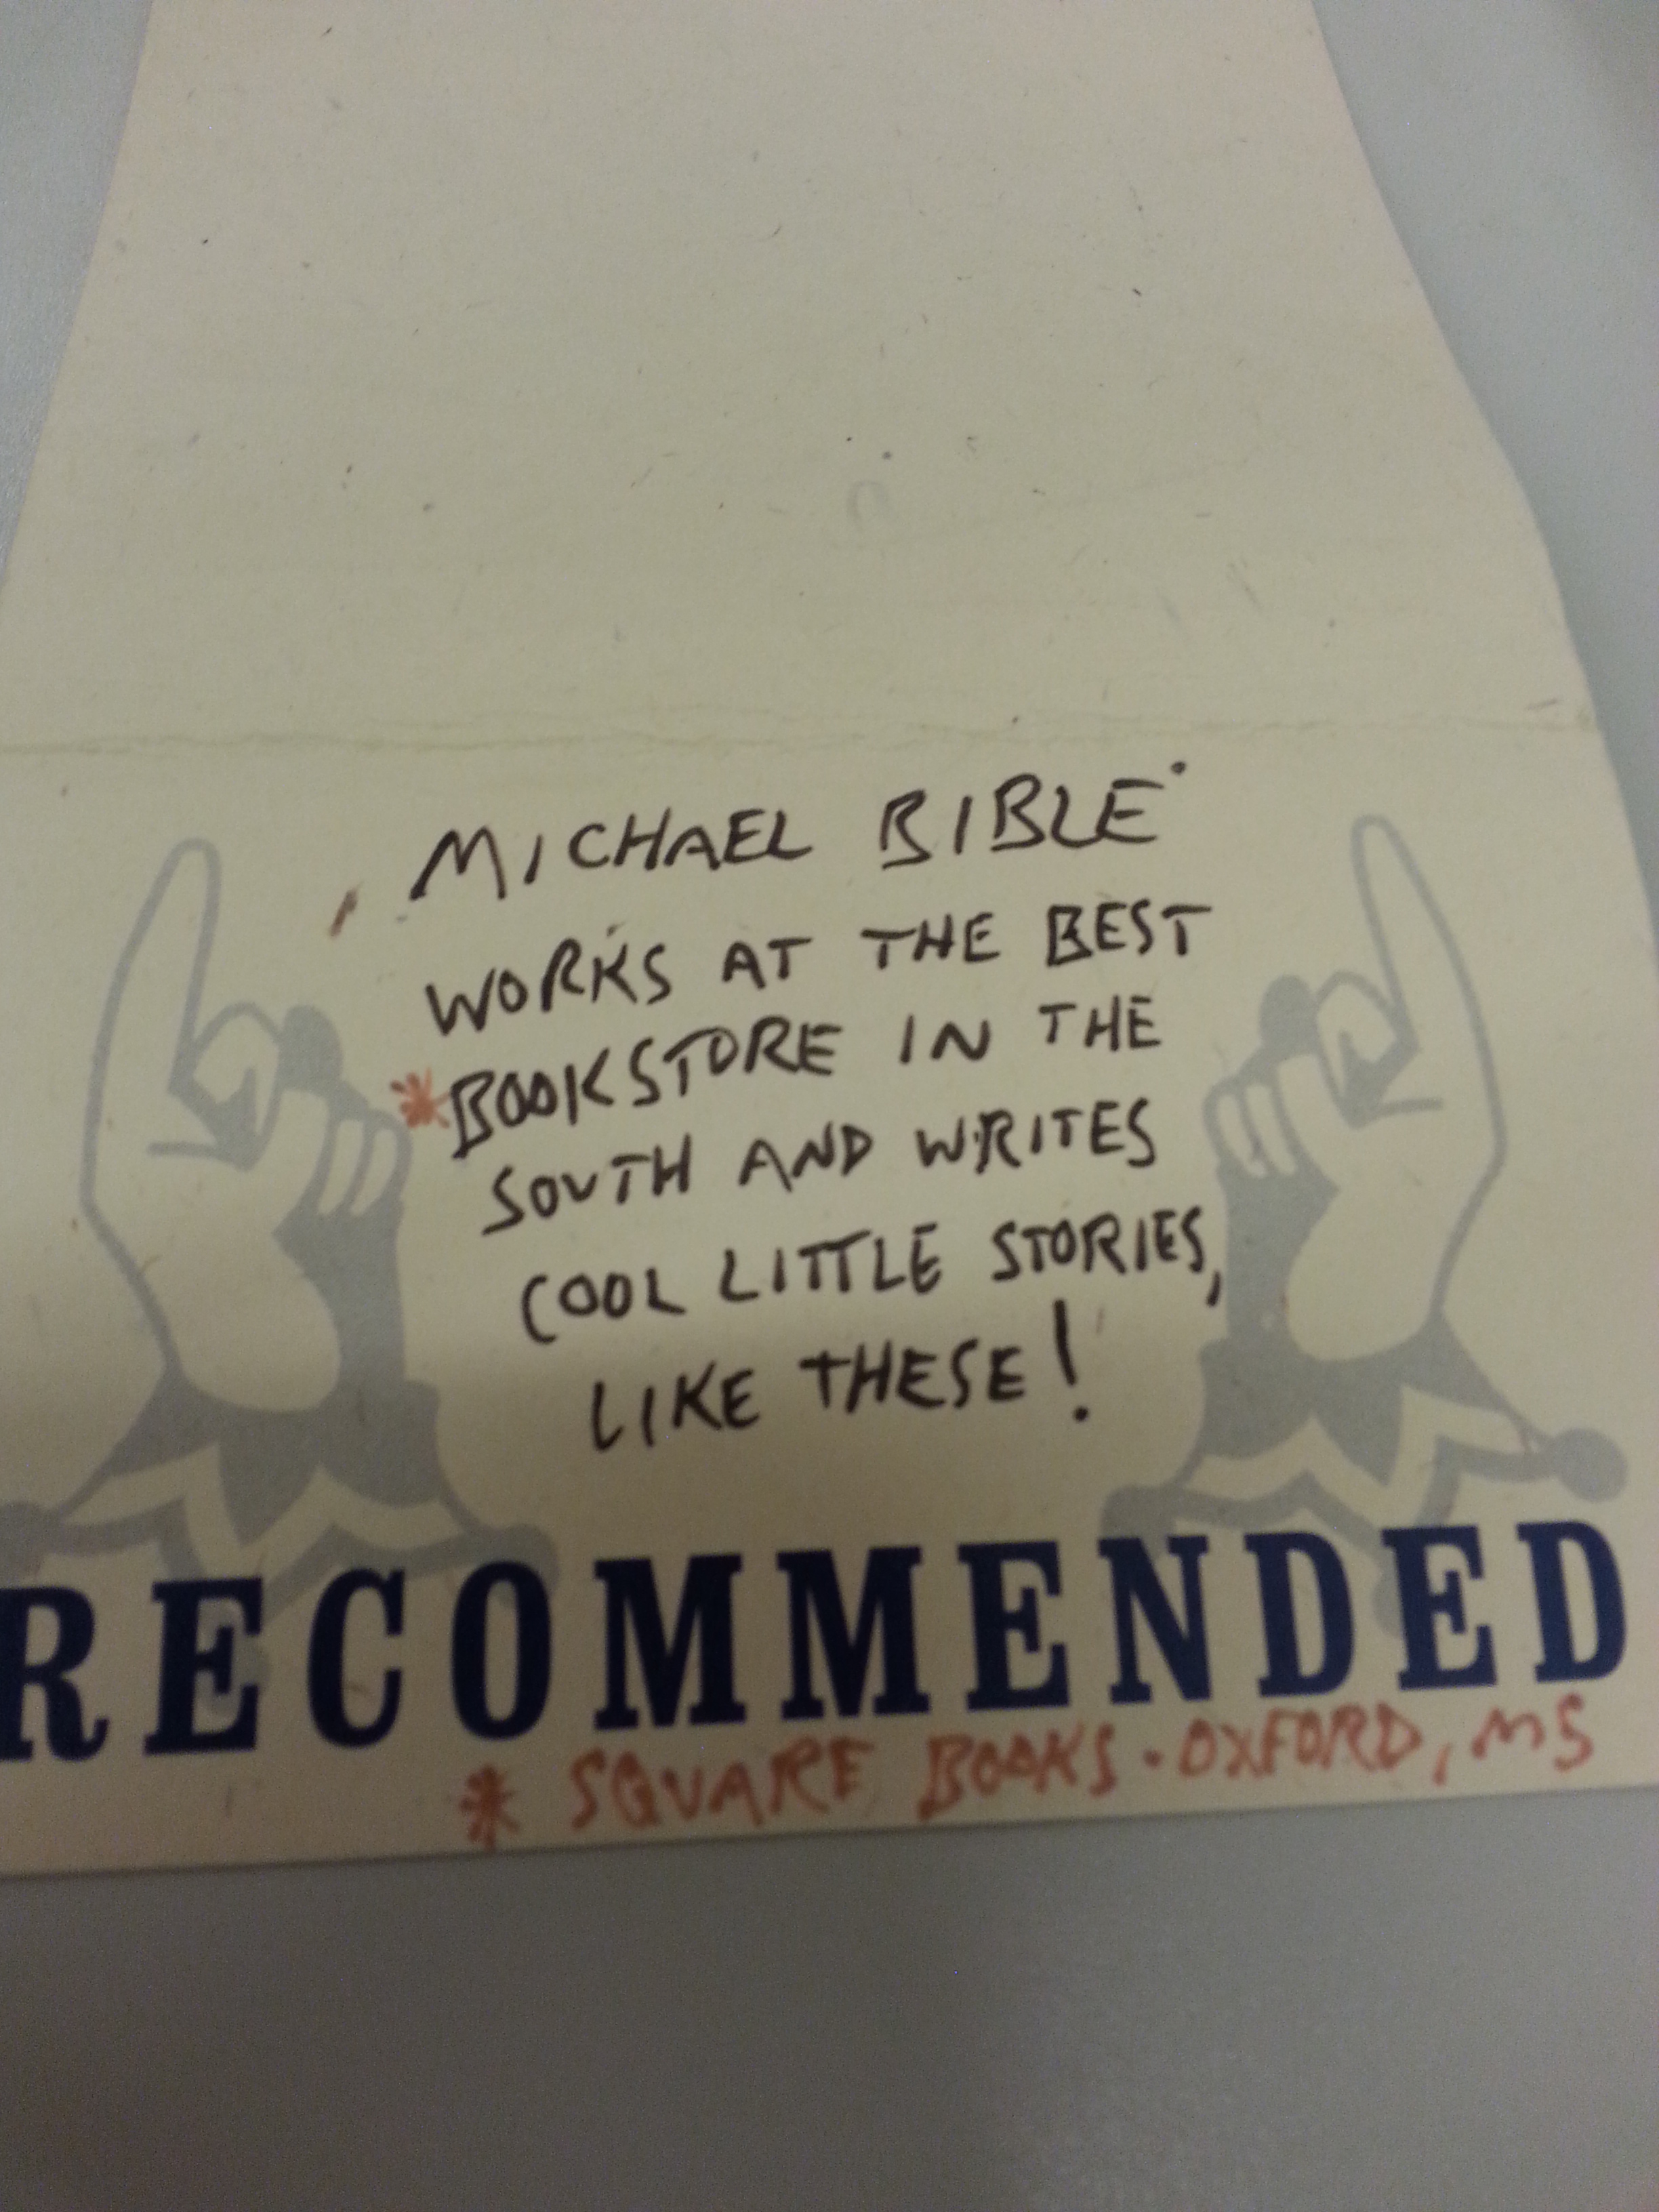 MICHAEL BIBLE
WORKS AT THE BEST
*BOOKSTORE IN THE
SOUTH AND WRITES
COOL LITTLE STORIES,
LIKE THESE!
RECOMMENDED
* SQUARE BOOKS · OXFORD, MS